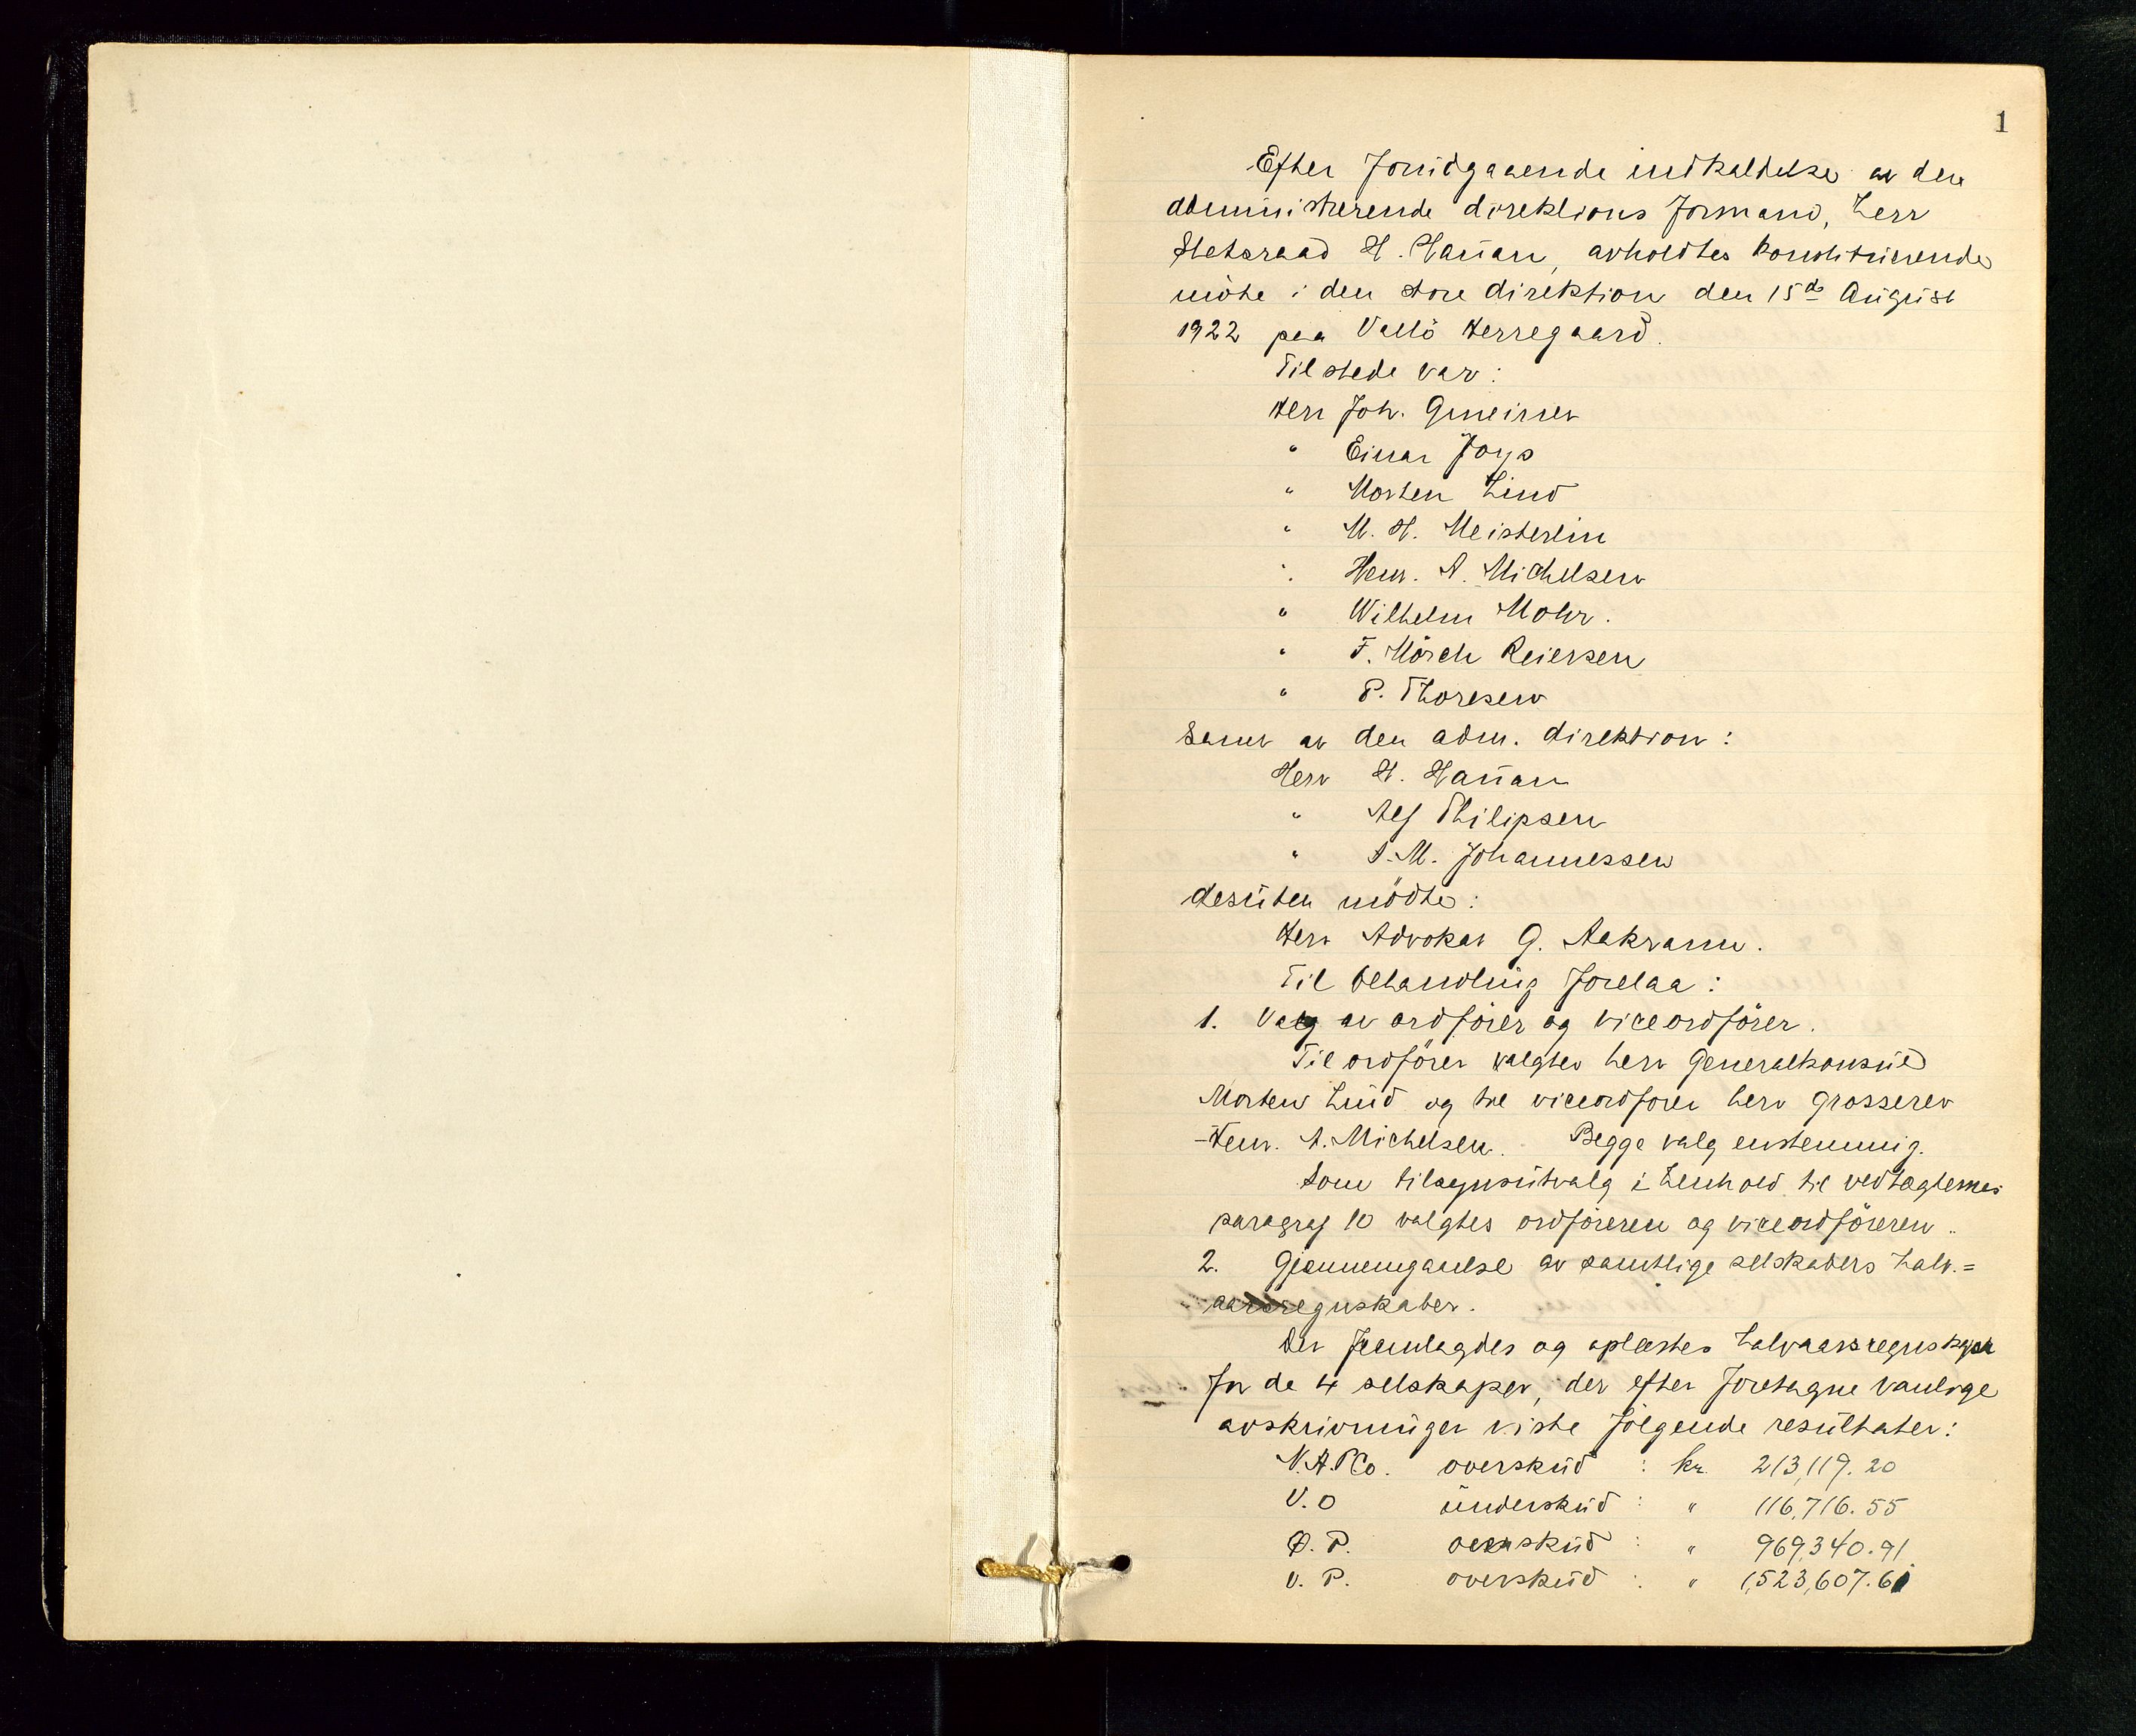 1
Efter forudgaaende indkaldelse av den
administrerende direktions formand, herr
Statsraad H. Hauan, avholdtes konstituerende
möte i den store direktion den 15de August
1922 paa Vallö Herregaard.
Tilstede var:
Herr Joh. Gmeiner
" Einar Joys
" Morten Lind
" M. H. Meisterlin
" Henr. A. Michelsen
" Wilhelm Mohr.
" F. Mörch Reiersen
" P. Thoresen
Samt av den adm. direktion:
Herr H. Hauan
" Alf Philipsen
" S.M. Johannessen
desuten mödte:
Herr Advokat G. Aakrann.
Til behandling forelaa:
1. Valg av ordförer og viceordförer.
Til ordförer valgtes herr Generalkonsul
Morten Lind og til viceordförer herr Grosserer
Henr. A. Michelsen. Begge valg enstemmig.
Som tilsynsutvalg i henhold til vedtægternes
paragraf 10 valgtes ordföreren og viceordföreren.
2. Gjennemgaaelse av samtlige selskabers halv-=
aarsregnskaber.
Der fremlagdes og oplæstes halvaarsregnskaper
for de 4 selskaper, der efter foretagne vanlige
avskrivninger viste fölgende resultater:
N.A.P.Co. overskud : kr. 213,119.20
V.O underskud : " 116,716.55
Ø.P. overskud : " 969,340.91
V.P. overskud : " 1,523,607.61